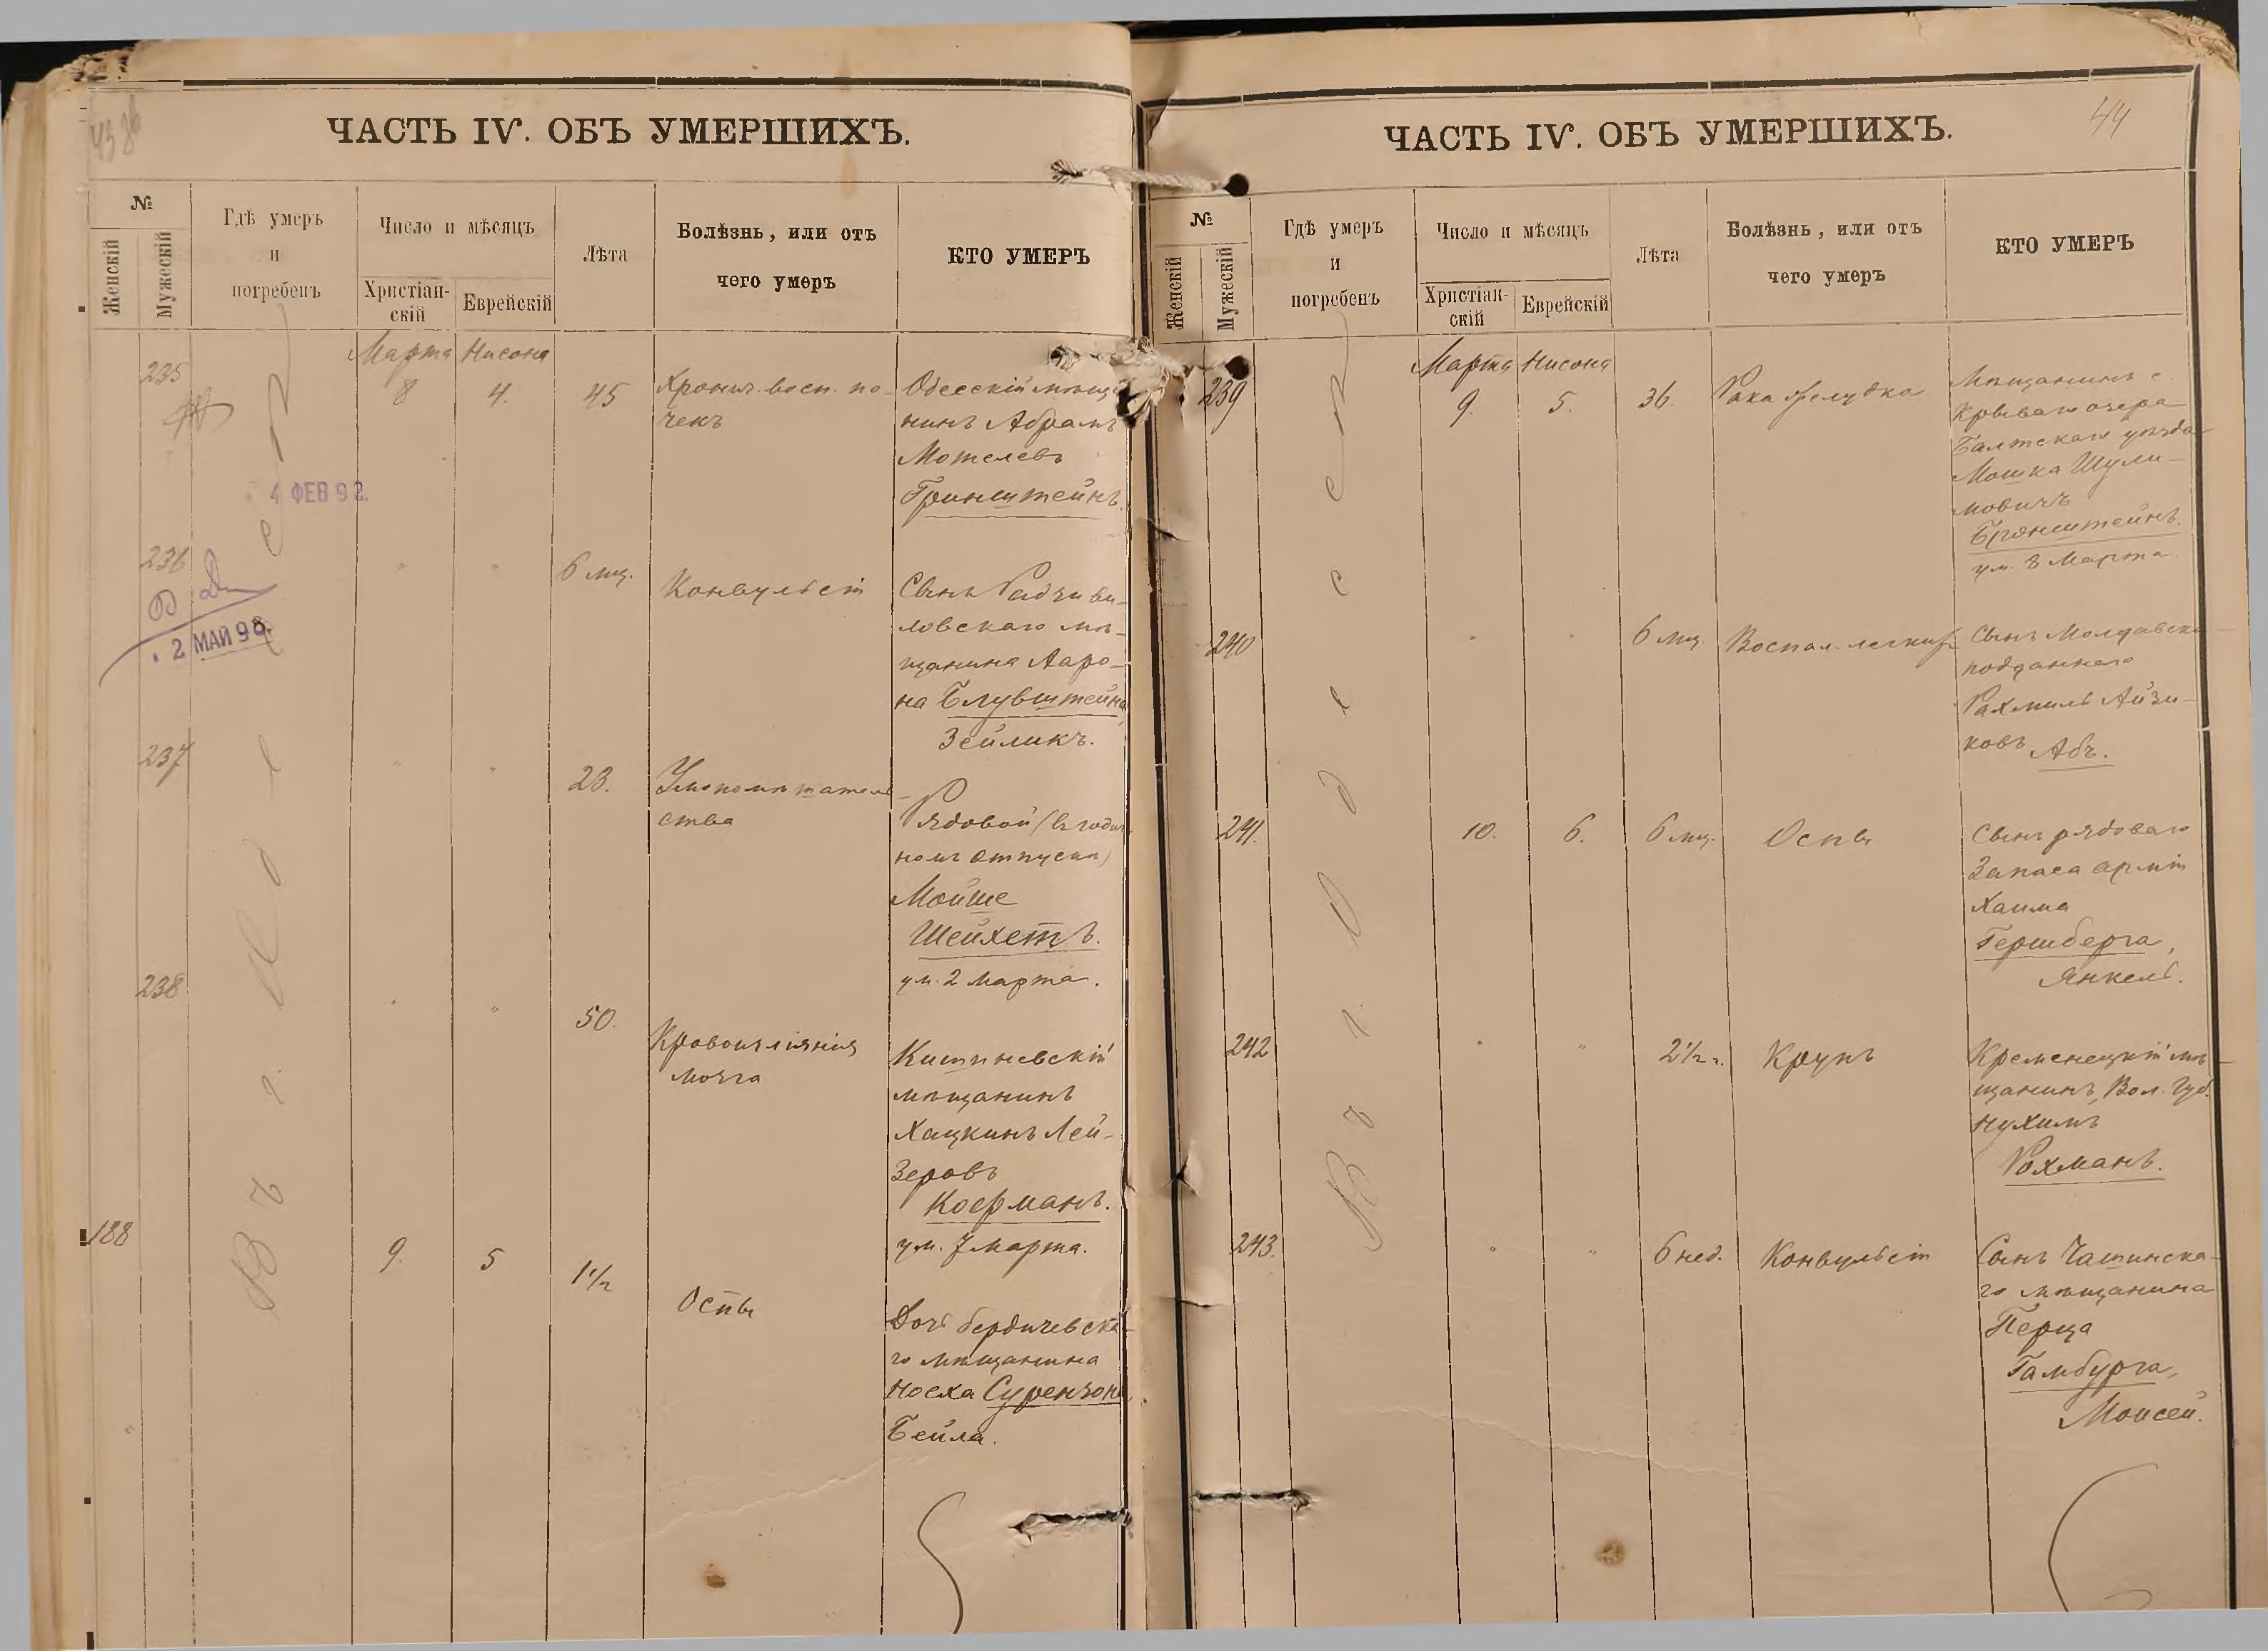 ЧАСТЬ IV. ОБЪ УМЕРШИХЪ.
№
Женскій
Мужескій
Гдѣ умеръ
и
погребенъ
Число и мѣсяцъ
Христіан-
скій
Еврейскій
Лѣта
Болѣзнь, или отъ
чего умеръ
КТО УМЕРЪ
Въ г. Одессѣ
235
Марта
8
Нисона
4.
45
Хронич. восп. по-
чекъ
Одесскій мѣща
нинъ Абрамъ
Мотелевъ
Гринштейнъ.
4 ФЕВ 92.
236
"
"
6 мц.
Конвульсій
Сынъ Радзиви-
ловскаго мѣ-
щанина Ааро-
на Блувштейна,
Зейликъ.
2 МАЙ 98.
237
"
"
23.
Умопомѣшатель-
ства
Рядовой (въ годич
номъ отпуску)
Мойше
Шейхетъ.
ум. 2 марта.
238
"
"
50.
Кровоизліянія
мозга
Кишиневскій
мѣщанинъ
Хацкинъ Лей-
Зеровъ
Кофманъ.
ум. 7 марта.
188
9.
5
1 1/2
Оспы
Дочь бердичевска-
го мѣщанина
Носха Сурензона
Бейла.
ЧАСТЬ IV. ОБЪ УМЕРШИХЪ.
44
№
Женскій
Мужескій
Гдѣ умеръ
и
погребенъ
Число и мѣсяцъ
Христіан-
скій
Еврейскій
Лѣта
Болѣзнь, или отъ
чего умеръ
КТО УМЕРЪ
Въ г. Одессѣ
239
Марта
9.
Нисона
5.
36.
Рака желудка
Мѣщанинъ с.
Криваго озера
Балтскаго уѣзда
Мошка Шули-
мовичъ
Бронштейнъ.
ум. 8 Марта
240
"
"
6 мц.
Воспал. легких
Сынъ Молдавско-
подданнаго
Рахмиль Айзи-
ковъ Абъ.
241.
10.
6.
6 мц.
Оспы
Сынъ рядоваго
Запаса арміи
Хаима
Гершберга,
Янкель.
242
"
"
2 1/2 г.
Крупъ
Кременецкій мѣ-
щанинъ, Вол. Губ.
Нухимъ
Рохманъ.
243.
"
"
6 нед.
Конвульсій
Сынъ Чашинска-
го мѣщанина
Перца
Гамбурга,
Моисей.